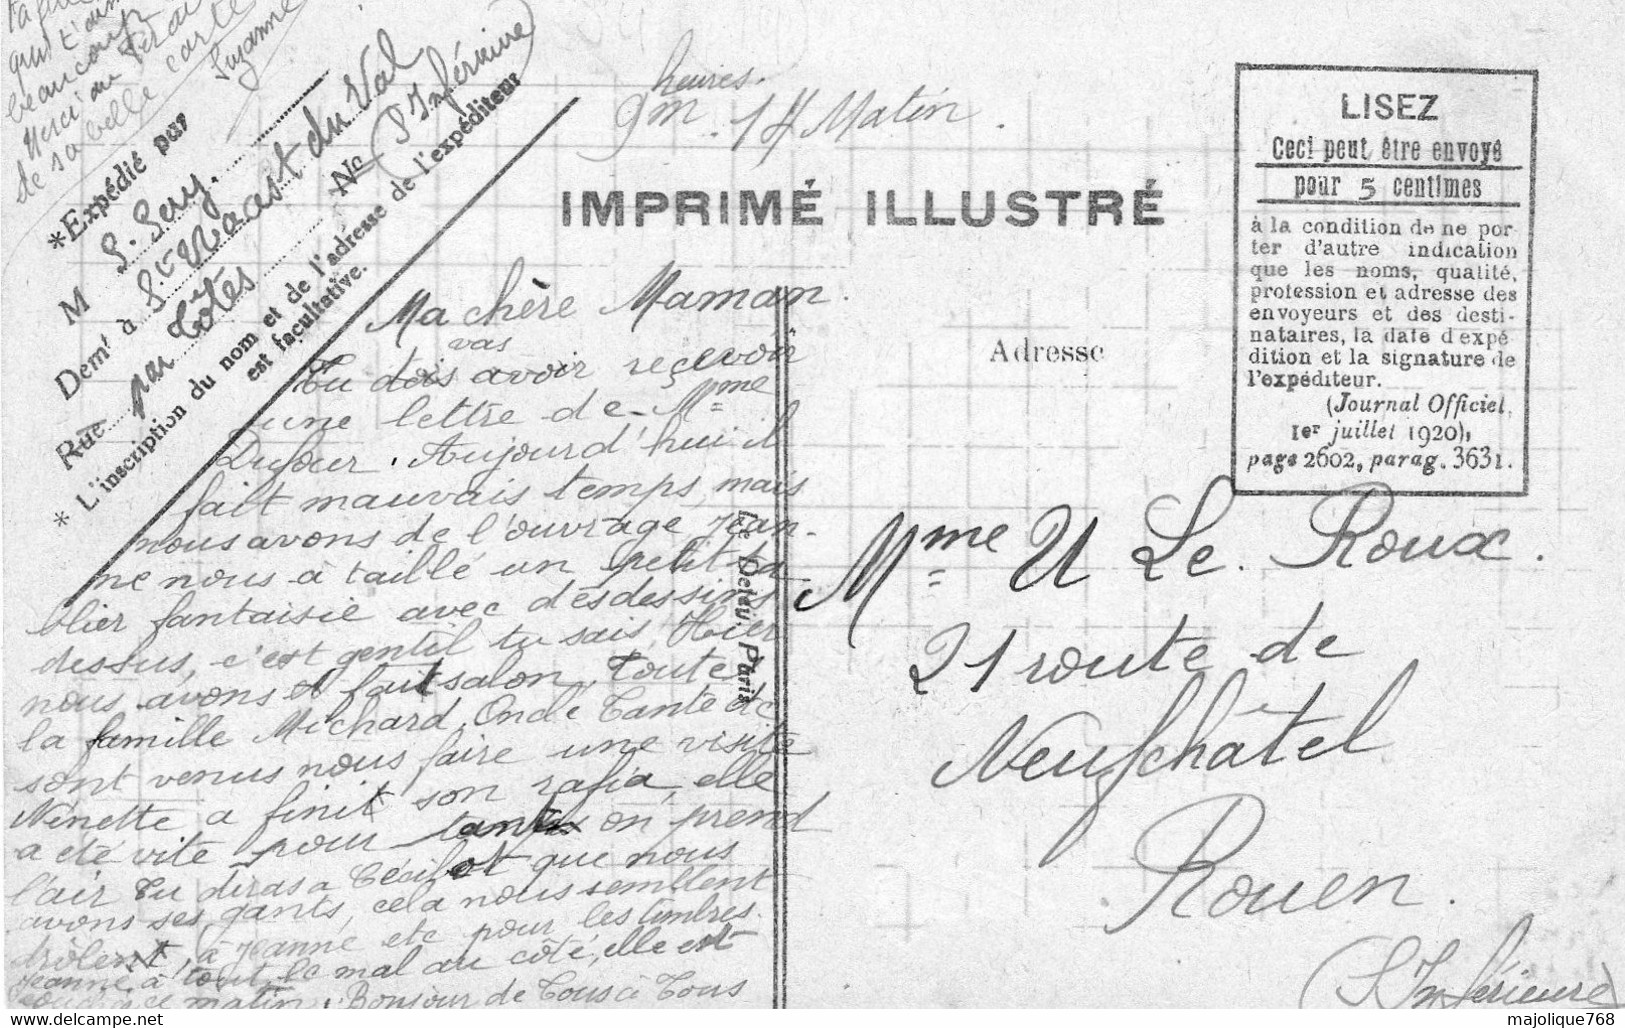 qui t'aime
beaucoup
Merci au
de sa belle carte
Suzanne
*Expédié par
M S. Sery.
Demt à St Vaast du Val
Rue par Tôtes No (S Inférieure)
* L'inscription du nom et de l'adresse de l'expéditeur
est facultative.
heures.
9m. 14 Matin.
IMPRIMÉ ILLUSTRÉ
LISEZ
Ceci peut être envoyé
pour 5 centimes
à la condition de ne por
ter d'autre indication
que les noms, qualité,
profession et adresse des
envoyeurs et des desti-
nataires, la date d'expé
dition et la signature de
l'expéditeur.
(Journal Officiel,
1er juillet 1920),
page 2602, parag. 3631.
Adresse
Ma chère Maman.
vas
Tu dois avoir reçevoir
une lettre de Mme
Dufour. Aujourd'hui il
fait mauvais temps, mais
nous avons de l'ouvrage Jean-
ne nous à taillé un petit ta-
blier fantaisie avec des dessins
dessus, c'est gentil tu sais, Hier
nous avons fait salon, Toute
la famille Michard, Oncle Tante etc
sont venus nous faire une visite
Nénette a finit son rafia, elle
a été vite pour on prend
l'air Tu diras a Cécile que nous
avons ses gants, cela nous semblent
drôlent, à Jeanne etc pour les timbres.
Jeanne à le mal au côté, elle est
ce matin. Bonjour de Tous à Tous
Le Deley, Paris
Mme U Le Roux.
21 route de
Neufchâtel
Rouen.
(S Inférieure)
majolique768